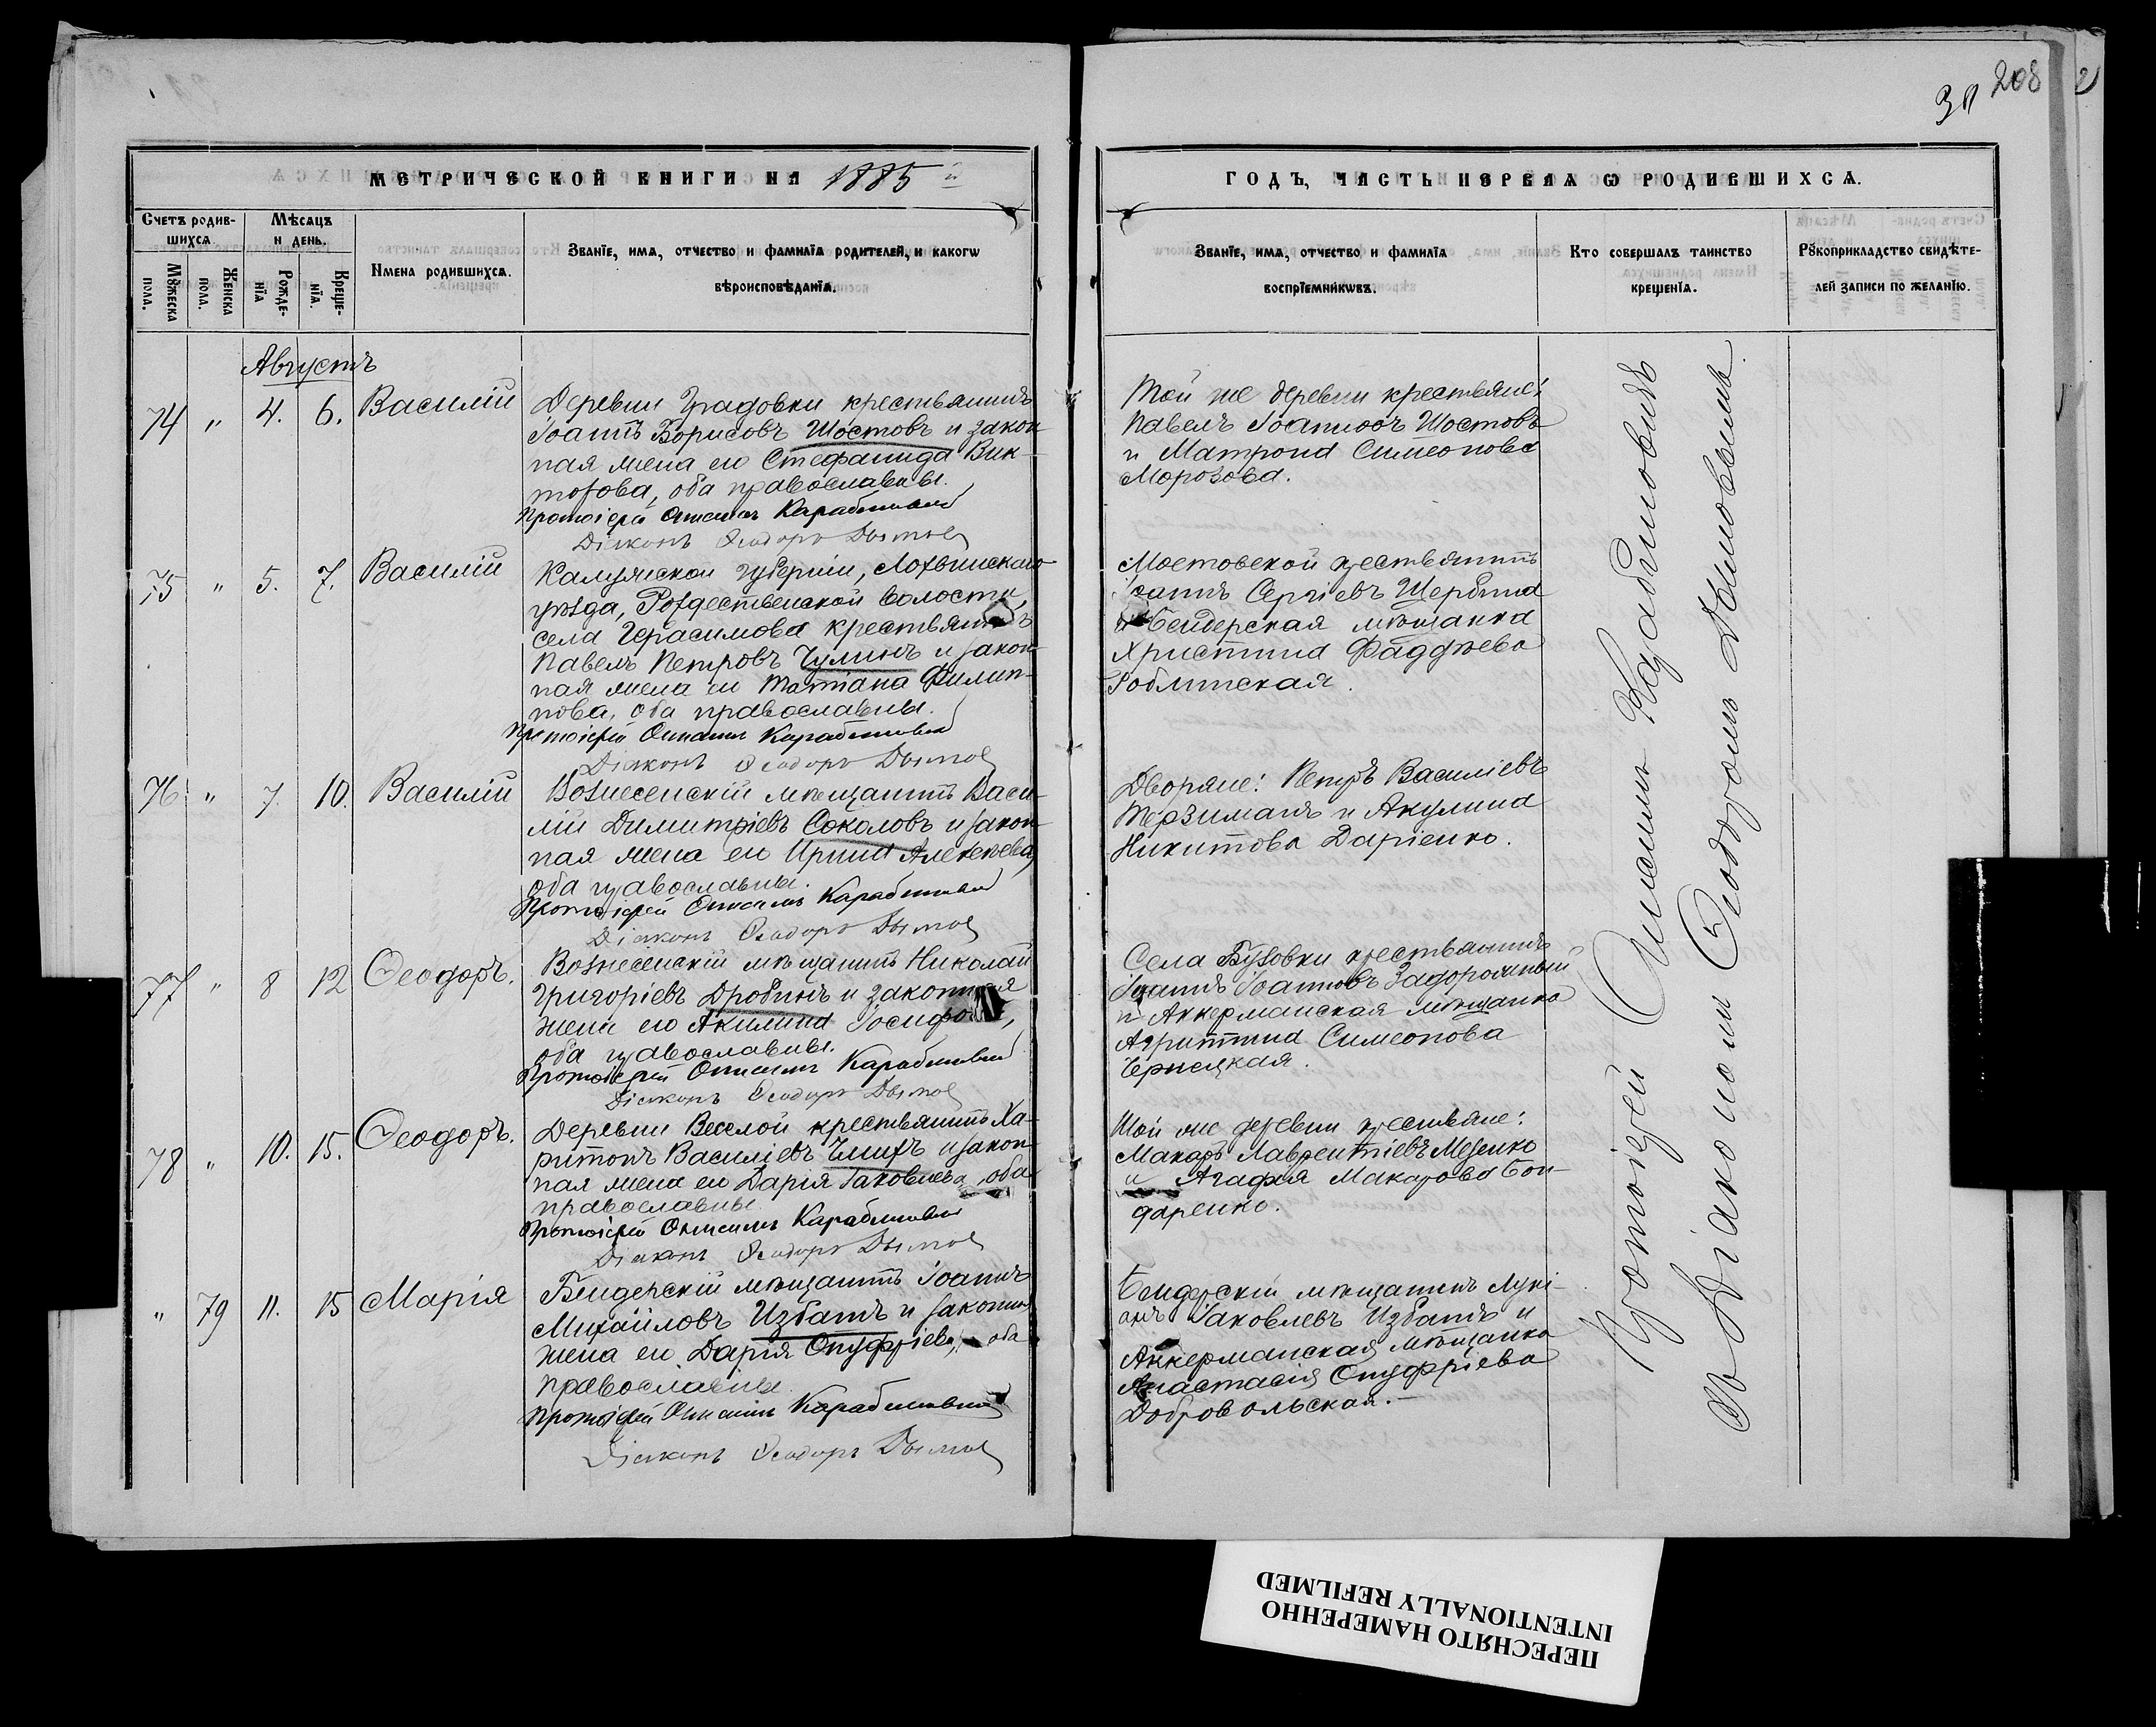 208
МЕТРИЧЕСКОЙ КНИГИ НА 1885 й
ГОДЪ, ЧАСТЬ ПЕРВАЯ Ѡ РОДИВШИХСѦ.
Счетъ родив-
шихсѧ.
Мѣсѧцъ
и день.
Мꙋжеска
пола.
Женска
пола.
Рожде-
нїѧ
Креще-
нїѧ.
Имена родившихсѧ.
Званїе, имѧ, отчество и фамилїѧ родителей, и какогѡ
вѣроисповѣданїѧ.
Званїе, имѧ, отчество и фамилїѧ
воспрїемникѡвъ.
Кто совершалъ таинство
крещенїѧ.
Рꙋкоприкладство свидѣте-
лей записи по желанїю.
Августъ
74 " 4. 6. Василій
Деревни Градовки крестьянинъ
Іоаннъ Борисовъ Шостовъ и закон
ная жена его Стефанида Вик-
торова, оба православны.
Протоіерей Онисимъ
Діаконъ Ѳеодоръ
Той же деревни крестьяне:
Павелъ Іоанновъ Шостовъ
и Матрона Симеонова
Морозова.
75 " 5. 7. Василій
Калужской губерніи, Лохвинскаго
уѣзда, Рождественской волости,
села Герасимова крестьянинъ
Павелъ Петровъ Чулинъ и закон-
ная жена его Татіана Филип-
пова, оба православны.
Протоіерей Онисимъ
Діаконъ Ѳеодоръ
Мостовской крестьянинъ
Іоаннъ Сергіевъ Щербина
и Бендерская мѣщанка
Христина Фаддѣева
76 " 7 10. Василій
Вознесенскій мѣщанинъ Васи-
лій Димитріевъ Соколовъ и закон
ная жена его Ирина Алексѣева,
оба православны.
Протоіерей Онисимъ
Діаконъ Ѳеодоръ
Дворяне: Петръ Василіевъ
Терзиманъ и Акулина
Никитова Даріенко.
77 " 8 12 Ѳеодоръ.
Вознесенскій мѣщанинъ Николай
Григоріевъ Дробинъ и законная
жена его Акилина
оба православны.
Протоіерей Онисимъ
Діаконъ Ѳеодоръ
Села Бузовки крестьянинъ
Іоаннъ Іоанновъ Задорожный
и Аккерманская мѣщанка
Агриппина Симеонова
78 " 10. 15. Ѳеодоръ.
Деревни Веселой крестьянинъ Ха-
ритонъ Василіевъ и закон-
ная жена его Дарія Іаковлева, оба
православны.
Протоіерей Онисимъ
Діаконъ Ѳеодоръ
Той же деревни крестьяне:
Макаръ Лаврентіевъ Мезенко
и Агафія Макарова Бон-
даренко.
" 79 11. 15 Марія
Бендерскій мѣщанинъ Іоаннъ
Михайловъ Избашъ и законн
жена его Дарія Онуфріева, оба
православны.
Протоіерей Онисимъ
Діаконъ Ѳеодоръ
Бендерскій мѣщанинъ Лукі-
анъ Іаковлевъ Избашъ и
Аккерманская мѣщанка
Анастасія Онуфріева
Добровольская.
Протоіерей Онисимъ
съ Діакономъ Ѳеодоромъ
ПЕРЕСНЯТО НАМЕРЕННО
INTENTIONALLY REFILMED